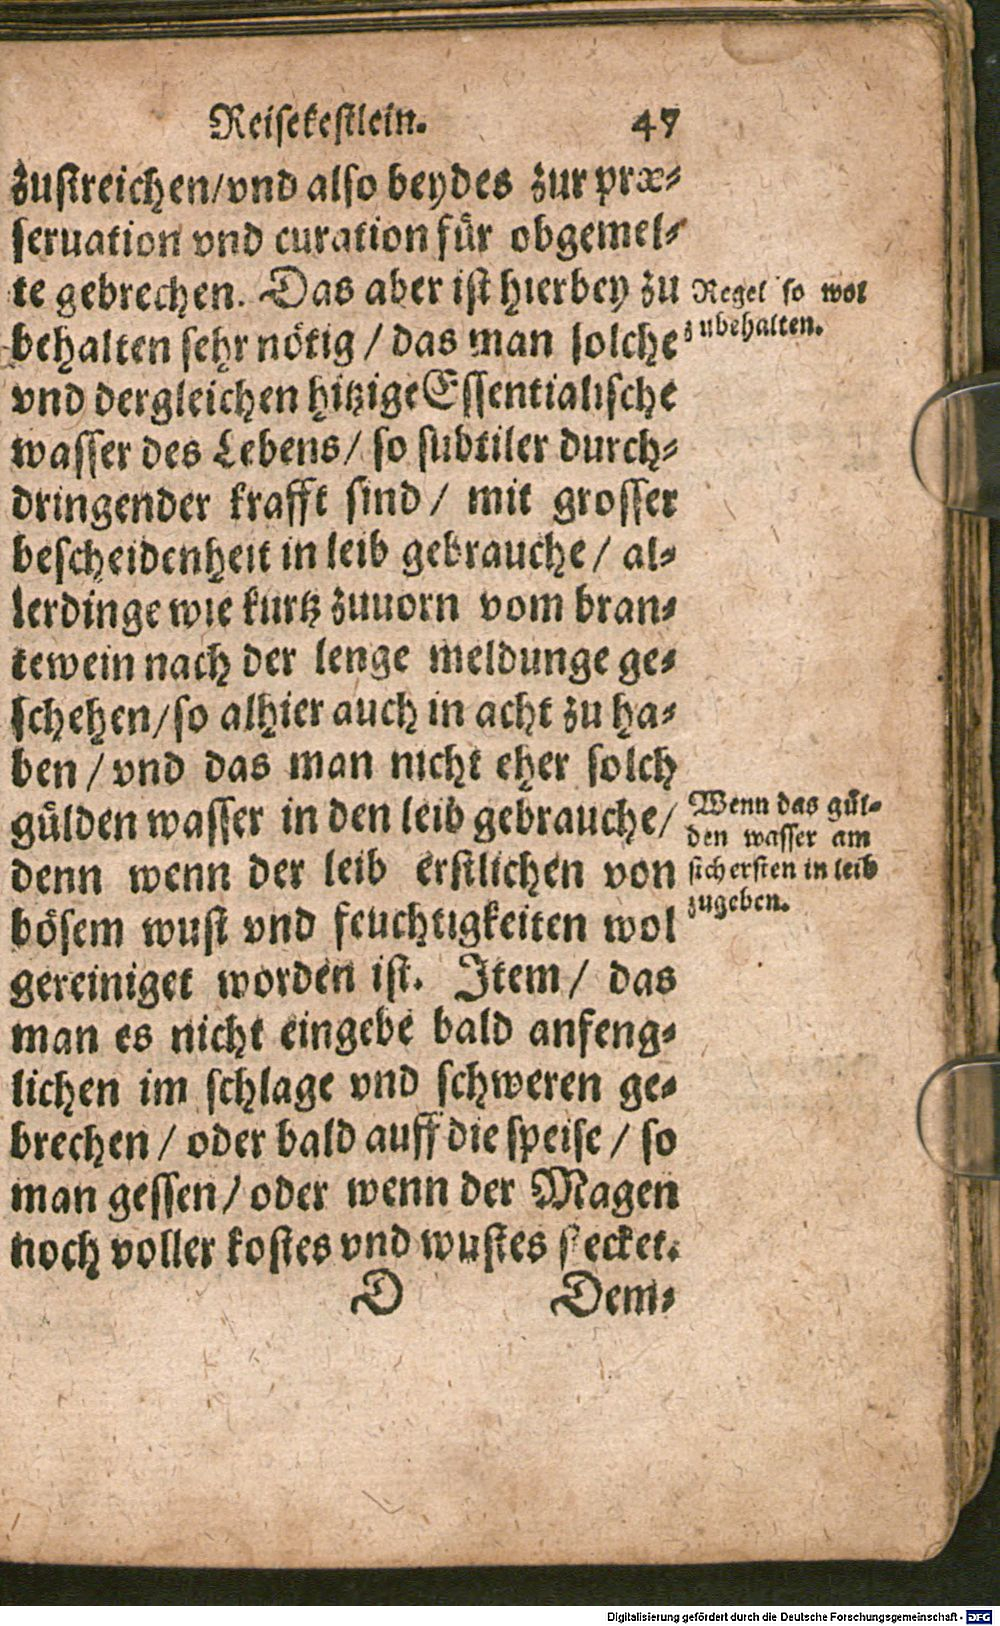 Reisekestlein. 47
zustreichen/vnd also beydes zur præ-
seruation vnd curation für obgemel-
te gebrechen. Das aber ist hierbey zu
behalten sehr nötig / das man solche
vnd dergleichen hitzige Essentialische
wasser des Lebens/ so subtiler durch-
dringender krafft sind/ mit grosser
bescheidenheit in leib gebrauche/ al-
lerdinge wie kurtz zuuorn vom bran-
tewein nach der lenge meldunge ge-
schehen/so alhier auch in acht zu ha-
ben / vnd das man nicht eher solch
gülden wasser in den leib gebrauche/
denn wenn der leib erstlichen von
bösem wust vnd feuchtigkeiten wol
gereiniget worden ist. Item/ das
man es nicht eingebe bald anfeng-
lichen im schlage vnd schweren ge-
brechen / oder bald auff die speise / so
man gessen/ oder wenn der Magen
noch voller kostes vnd wustes stecket.
D Dem-
Regel so wol
zubehalten.
Wenn das gül-
den wasser am
sichersten in leib
zugeben.
Digitalisierung gefördert durch die Deutsche Forschungsgemeinschaft - DFG